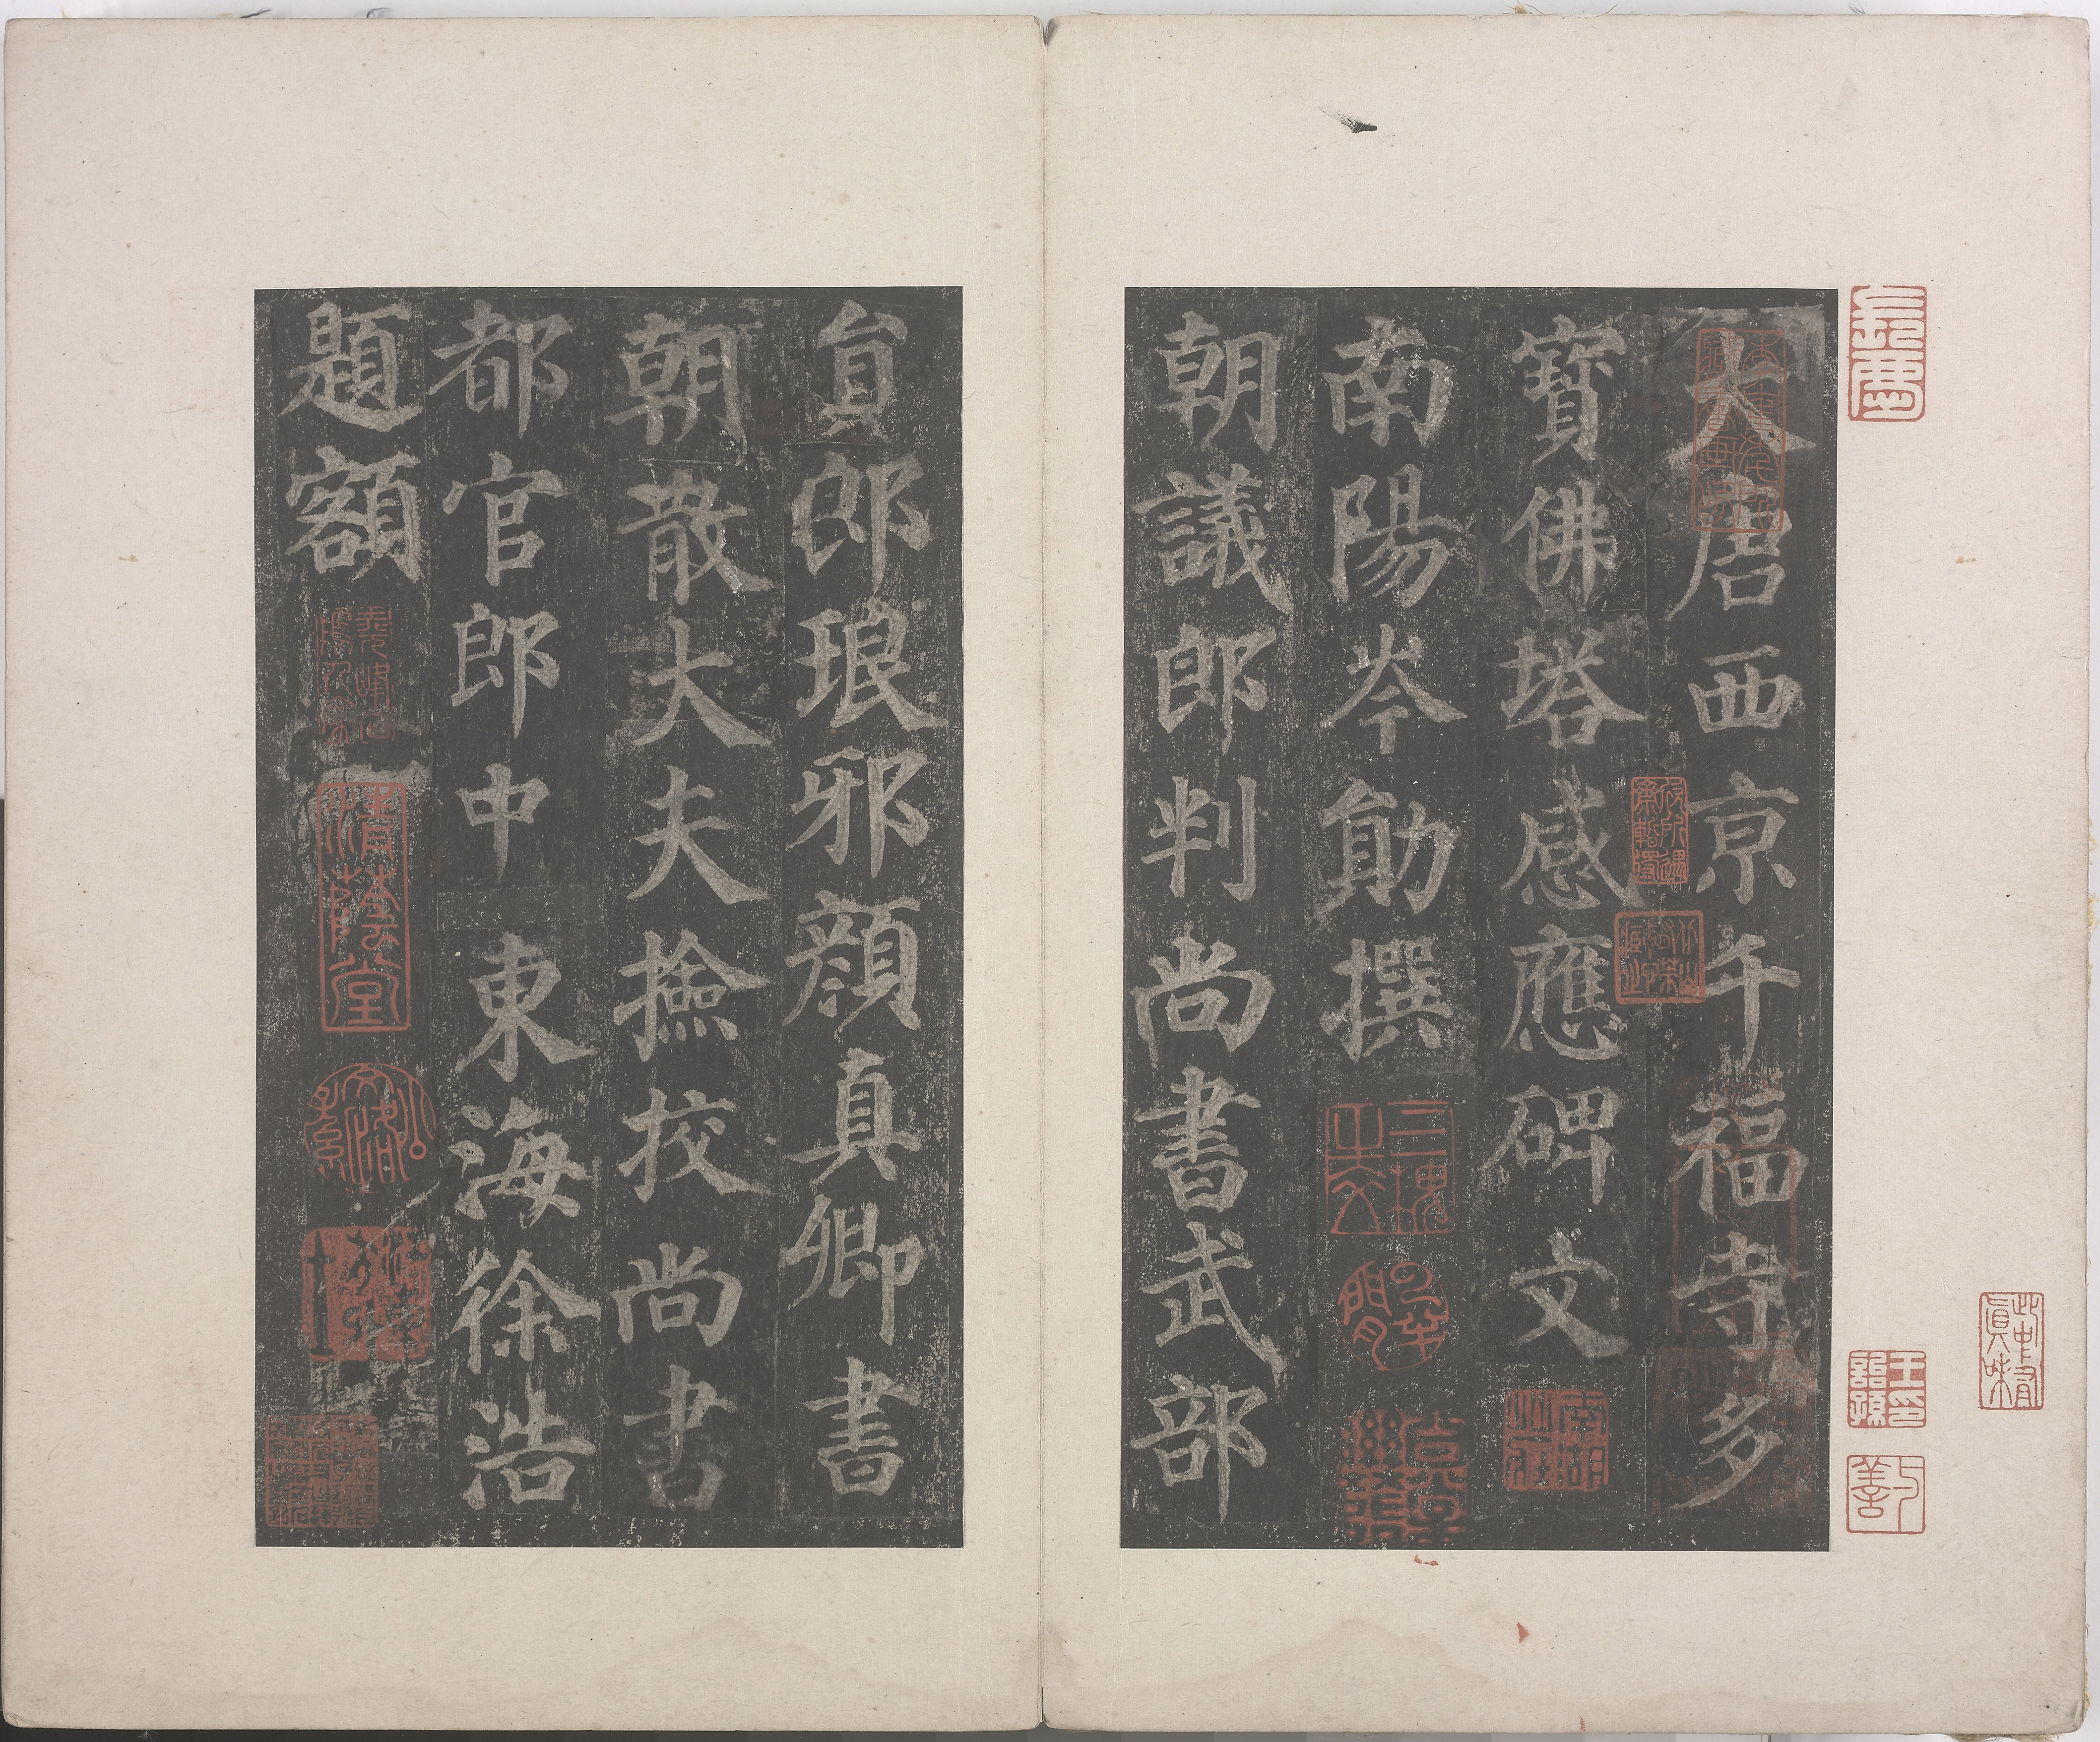 大唐西京千福寺多
寶佛塔感應碑文
南陽岑勛撰
朝議郎判尚書武部
員郎琅邪顏真卿書
朝散大夫撿挍尚書
都官郎中東海徐浩
題額
清蔭堂
此中有真味